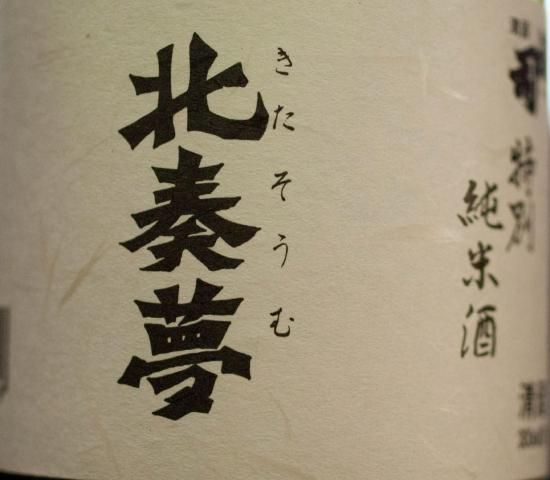 北奏夢
きたそうむ
特別
純米酒